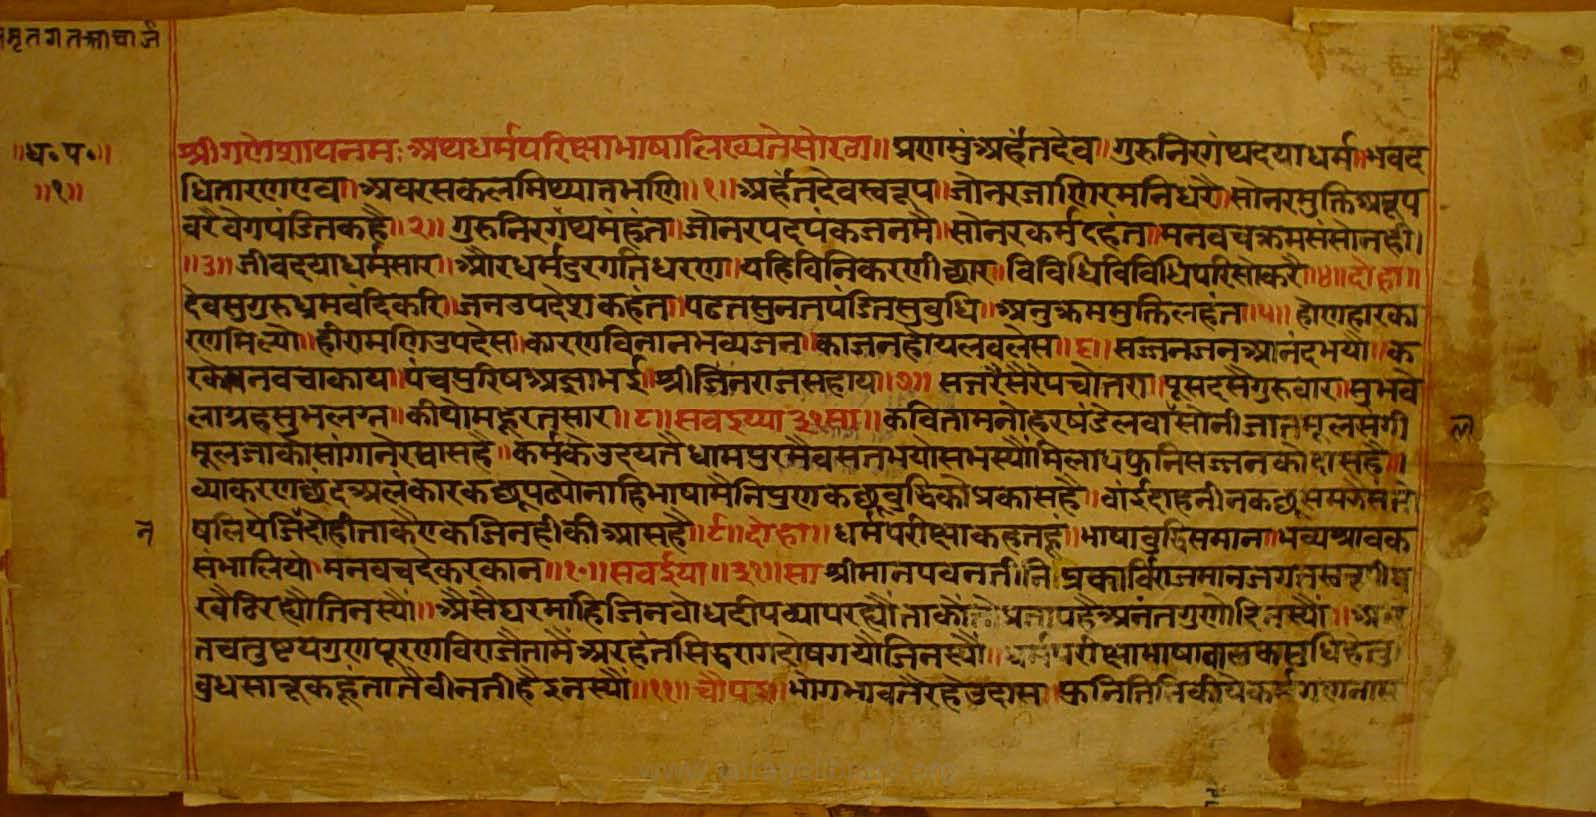 मृतगतआचार्ज
॥ध॰प॰॥
॥१॥
श्रीगणेशायनमः अथधर्मपरिक्षाभाषालिख्यतेसोरठा॥ प्रणमुंअर्हंतदेव॥ गुरुनिरगंथदयाधर्म॥ भवद
धितारणएव॥ अवरसकलमिथ्यातभणि॥१॥ अर्हंतदेवस्वरूप॥ जोनरजाणिरमनिधरै॥ सोनरमुक्तिअनूप
वरवेगपंडितकहै॥२॥ गुरुनिरगंथमंहंत॥ जौनरपदपंकजनमै॥ सोनरकर्मदहंत॥ मनवचक्रमसंसोनही।
॥३॥ जीवदयाधर्मसार॥ औरधर्मदुरगतिधरण॥ यहिविनिकरणीछार॥ विविधिविविधिपरिसोकरै॥४॥ दोहा॥
देवसुगुरुध्रमवंदिकरि॥ जनउपदेशकहंत॥ पढतसुनतपंडितसुबुधि॥ अनुक्रममुक्तिलहंत॥५॥ होणहारका
रणमिल्यो॥ हीरामणिउपदेस॥ कारणविनानभव्यजन॥ काजनहोयलवलेस॥६॥ सज्जनजनआनंदभयौ॥ क
रकेमनवचाकाय॥ पंचपुरिषअज्ञाभई॥ श्रीजिनराजसहाय॥७॥ सतरैसैरैपचोतरा॥ पूसदसैगुरुवार॥ सुभवे
लाग्रहसुभलग्न॥ कीयोमहूरतसार॥८॥ सवइय्या३१सा॥ कवितामनोहरषंडेलवालसोनीजातमूलसंगी
मूलजाकोसांगानेरवासहै॥ कर्मकेउदयतैधामपुरमैवसतभयोसभस्यौंमिलापफुनिसज्जनकोदासहै॥।
व्याकरणछंदअलंकारकछूपढ्योनाहिभाषामैनिपुणकछूबुद्धिकोप्रकासहै॥ वांईदाहनीनकछूसमझैसंतो
षलियेजिंदोहीताकैएकजिनहीकीआसहै॥९॥ दोहा॥ धर्मपरीक्षाकहतहूं॥ भाषाबुद्धिसमान॥ भव्यश्रावक
संभालियो॥ मनवचदेकरकान॥१०॥ सवईया॥३१॥सा
रवैठिरह्यौतिनस्यौं॥ असैघरमांहिजिनबोधदीपव्यापरह्यौताकौ
तचतुष्टयगुणपूरणविराजैतामैंअरहंतसिद्धरागदोषगयौजिनस्यौं॥ धर्मपरीक्षाभाषाबालकसुधिहेतु
बुधसारूकहूंतातैवीनतीहैइनस्यौं॥११॥ चौपई॥ भोगभावतैरहेउदास॥